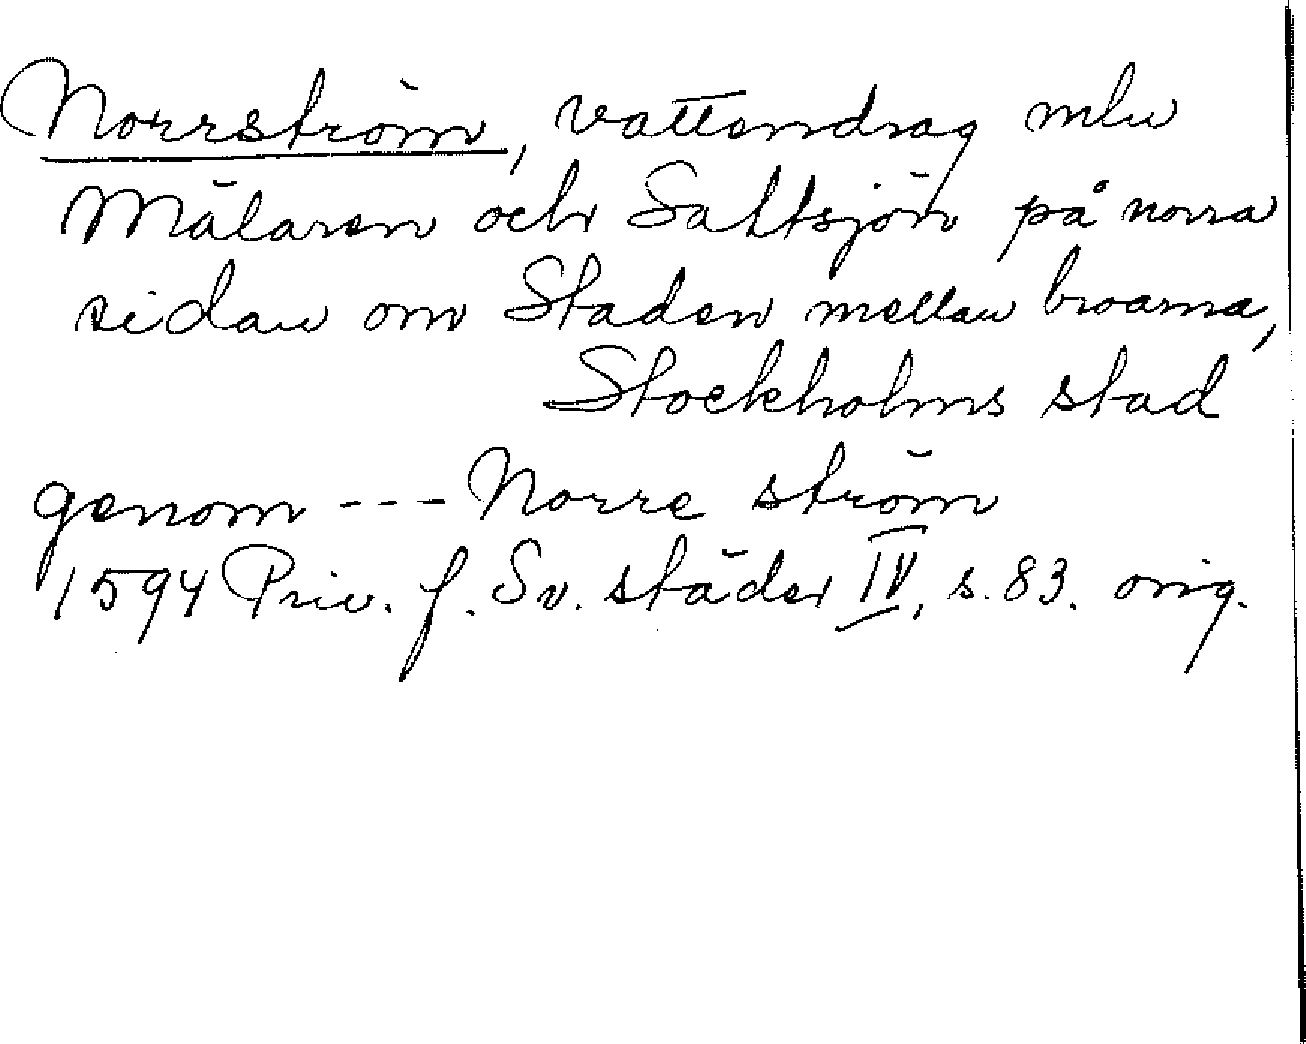 Norrström, vattendrag mln
Mälaren och Saltsjön på norra
sidan om Staden mellan broarna,
Stockholms stad
genom --- Norre ström
1594 Priv. f. Sv. städer IV, s. 83. orig.